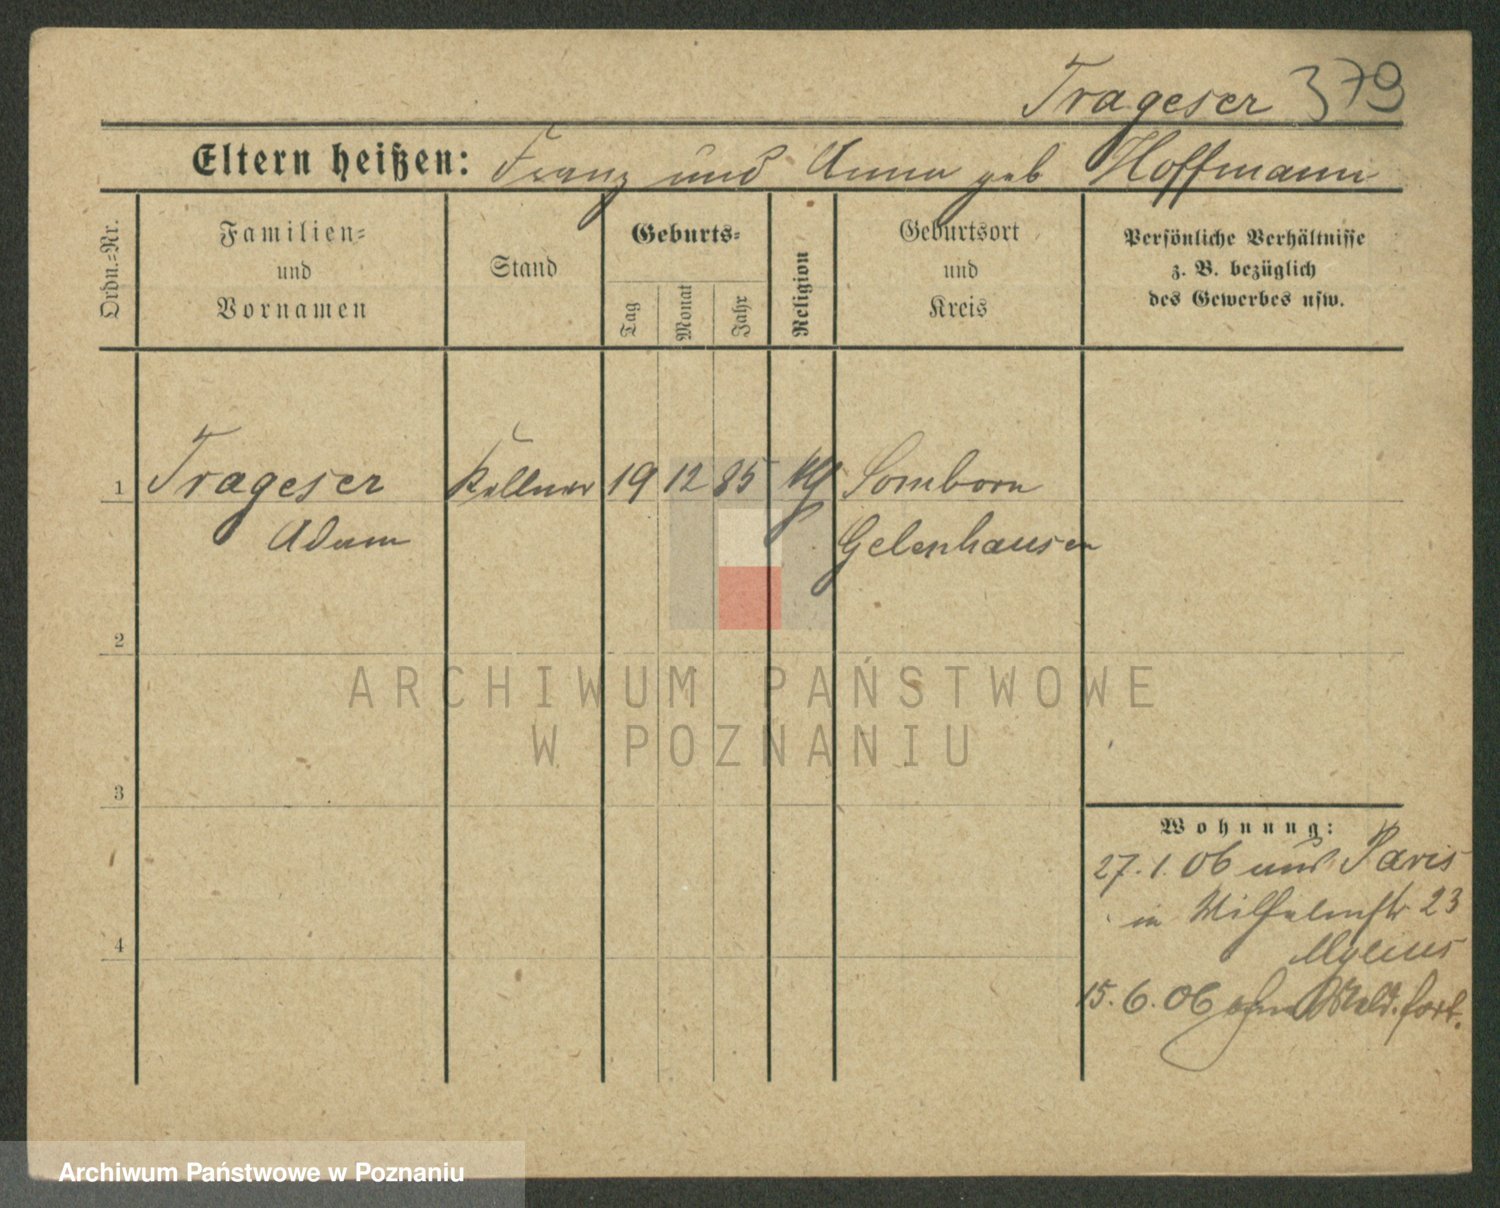 Trageser 379
Eltern heißen: Franz und Anna geb Hoffmann
Ordn.-Nr.
Familien-
und
Vornamen
Stand
Geburts-
Tag
Monat
Jahr
Religion
Geburtsort
und
Kreis
Persönliche Verhältnisse
z. B. bezüglich
des Gewerbes usw.
1 Trageser Kellner 19 12 85 kg Somborn
Adam Gelenhausen
2
3
4
Wohnung:
27.1.06 aus Paris
in Wilhelmstr 23
Mylius
15.6.06 ohne Meld. fort.
ARCHIWUM PAŃSTWOWE
W POZNANIU
Archiwum Państwowe w Poznaniu